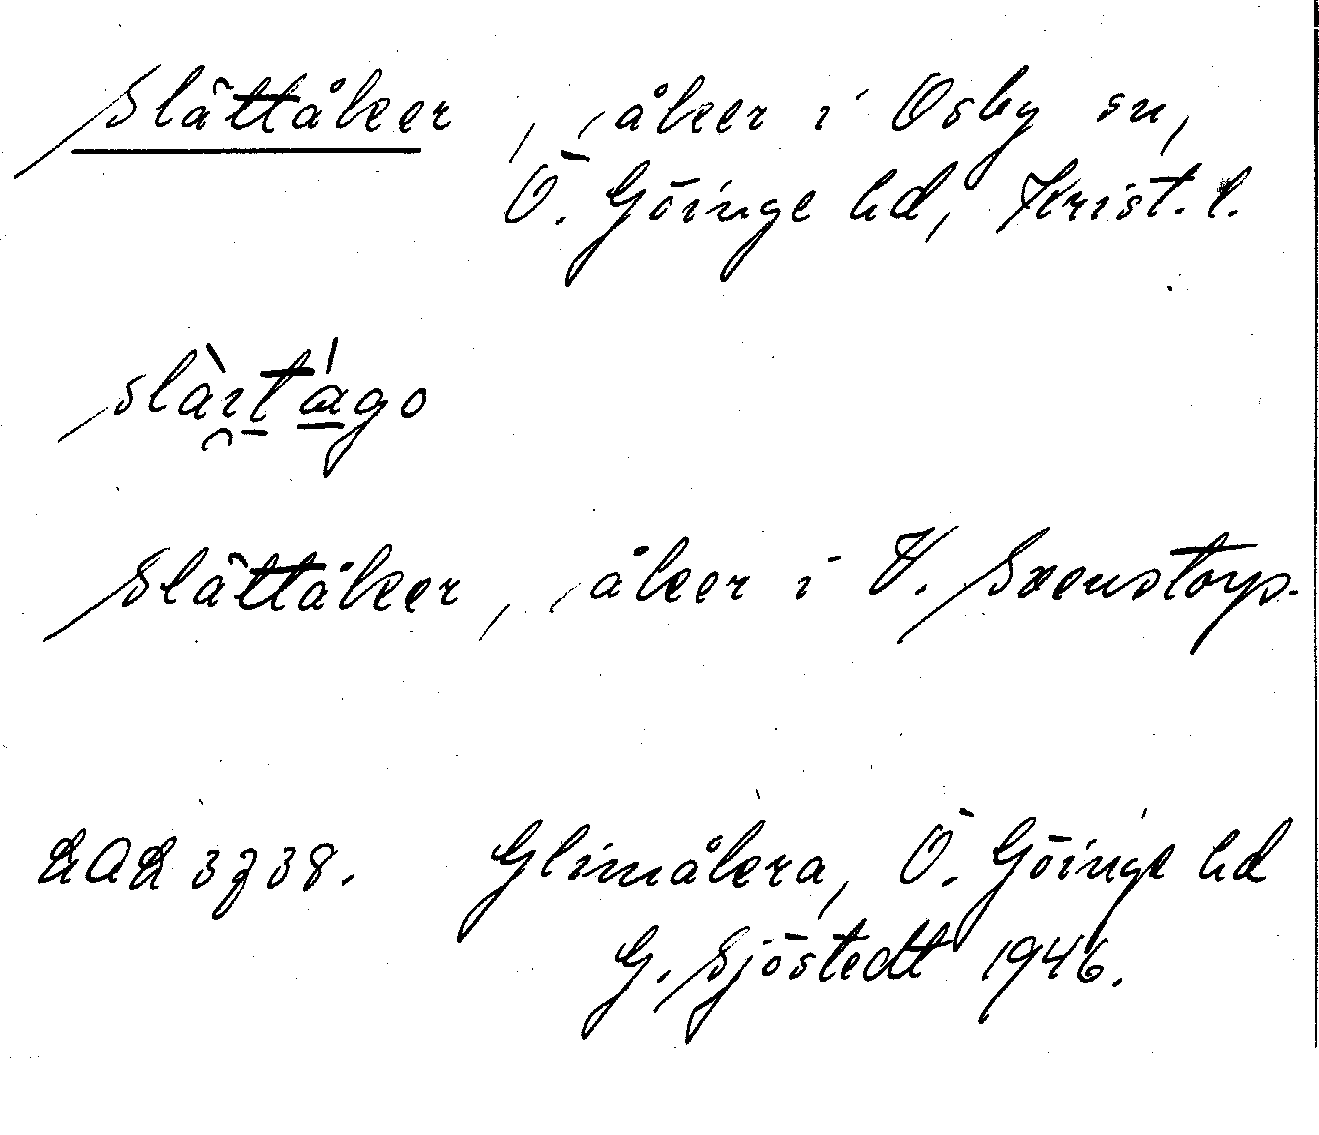 Slättåker, åker i Osby sn,
Ö. Göinge hd, Krist. l.
Slättåker, åker i V. Svenstorp.
LAL 3738. Glimåkra, Ö. Göinge hd
G. Sjöstedt 1946.